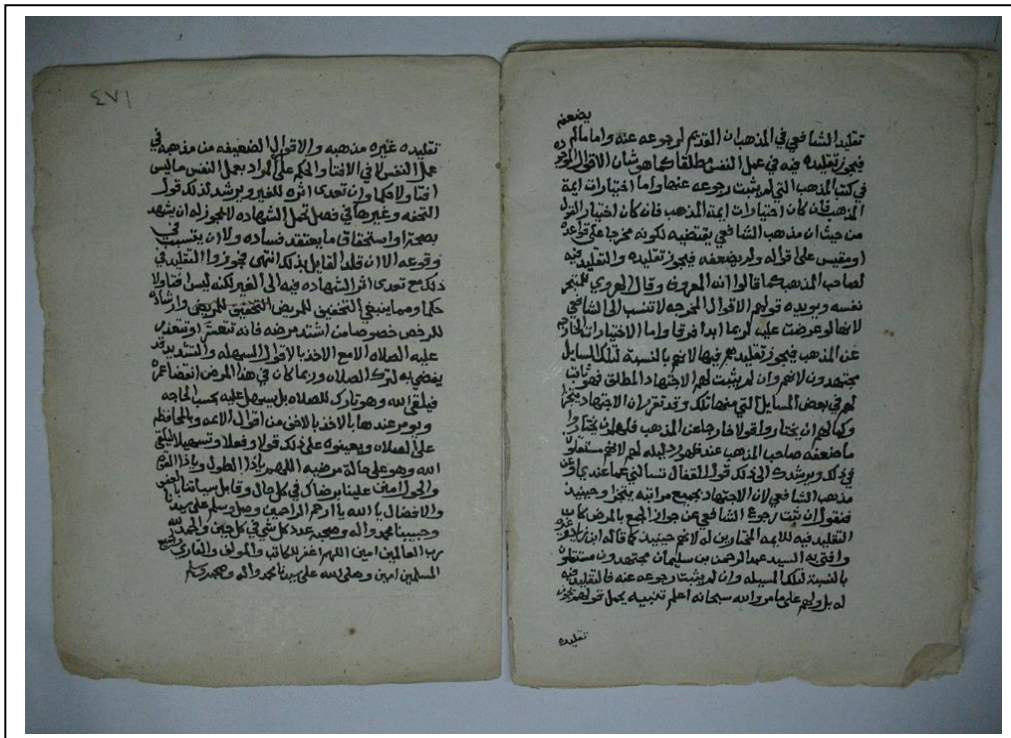 يضعفه
تقليد الشافعي في المذهب ان القديم لرجوعه عنه واما ما لم
فيجوز تقليده فيه في عمل النفس مطلقا كما هو شان الاقوال
في كتب المذهب التي لم يثبت رجوعه عنها واما اختيارات ايمة
المذهب فان كان اختيارات ايمة المذهب فان كان اختيار القول
من حيث ان مذهب الشافعي يقتضيه لكونه مخرجا على قواعده
او مقيس على اقواله ولم يضعفه فيجوز تقليده والتقليد فيه
لصاحب المذهب كما قالوا انه المعروف وقال الهروي
نفسه ويويده قولهم الاقوال المخرجه لا تنسب الى الشافعي
لانها لو عرضت عليه لربما ابدا فرقا واما الاختيارات الخارجه
عن المذهب فيجوز تقليدهم فيها لانهم بالنسبة لتلك المسايل
مجتهدون لانهم وان لم يثبت لهم الاجتهاد المطلق فهو ثابت
لهم في بعض المسايل التي منها تلك وقد تقرر ان الاجتهاد يتجزا
وكما لهم ان يختاروا قولا خارجا عن المذهب فلهم ان يختاروا
ما ضعفه صاحب المذهب عند ظهور دليله لهم لانهم مستقلون
في ذلك ويرشدك الى ذلك قول القفال تسالني عما عندي او عن
مذهب الشافعي لان الاجتهاد بجميع مراتبه يتجزا وحينيذ
فنقول ان ثبت رجوع الشافعي عن جواز الجمع بالمرض كان
التقليد فيه للايمه المختارين له لانهم حينيذ كما قاله ابن زياد وغيره
وافتى به السيد عبد الرحمن بن سليمان مجتهدون مستقلون
بالنسبة لتلك المسيله وان لم يثبت رجوعه عنه فالتقليد فيه
له بل ولهم على ما مر والله سبحانه اعلم تنبيه يحمل قولهم يجوز
تقليده
٤٧١
تقليده غيره مذهبه والاقوال الضعيفه من مذهبه في
عمل النفس لا في الافتا والحكم على المراد بعمل النفس ما ليس
افتا ولا حكما وان تعدى اثره للغير ويرشد لذلك قول
التحفه وغيرها في فصل تحمل الشهاده لا يجوز له ان يشهد
بصحة او استحقاق ما يعتقد فساده ولا ان يتسبب في
وقوعه الا ان قلد القايل بذلك انتهى فجوزوا التقليد في
ذلك مع تعدى اثر الشهاده فيه الى الغير لكنه ليس افتا ولا
حكما ومما ينبغي التخفيف للمريض التخفيف للمريض وارشاده
للرخص خصوصا من اشتد مرضه فانه تتعسر او تتعذر
عليه الصلاة الا مع الاخذ بالاقوال السهله والتشديد قد
يفضي به لترك الصلاة وربما كان في هذا المرض انقضا عمره
فيلقى الله وهو تارك للصلاه بل يسهل عليه بحسب الحاجه
ويومر عندها بالاخذ بالاخف من اقوال الايمه وبالمحافظه
على الصلاة ويعينوه على ذلك قولا وفعلا وتسهيلا ليلقى
الله وهو على حالة مرضيه اللهم ياذا الطول وياذا القوه
والحول امنن علينا برضاك في كل حال وقابل سياتنا بالعفو
والافضال يا الله يا ارحم الراحمين وصل وسلم على سيدنا
وحبيبنا محمد واله وصحبه عدد كل شي في كل حين والحمد لله
رب العالمين امين اللهم اغفر للكاتب والمولف والقاري وجميع
المسلمين امين وصلى الله على سيدنا محمد واله وصحبه وسلم